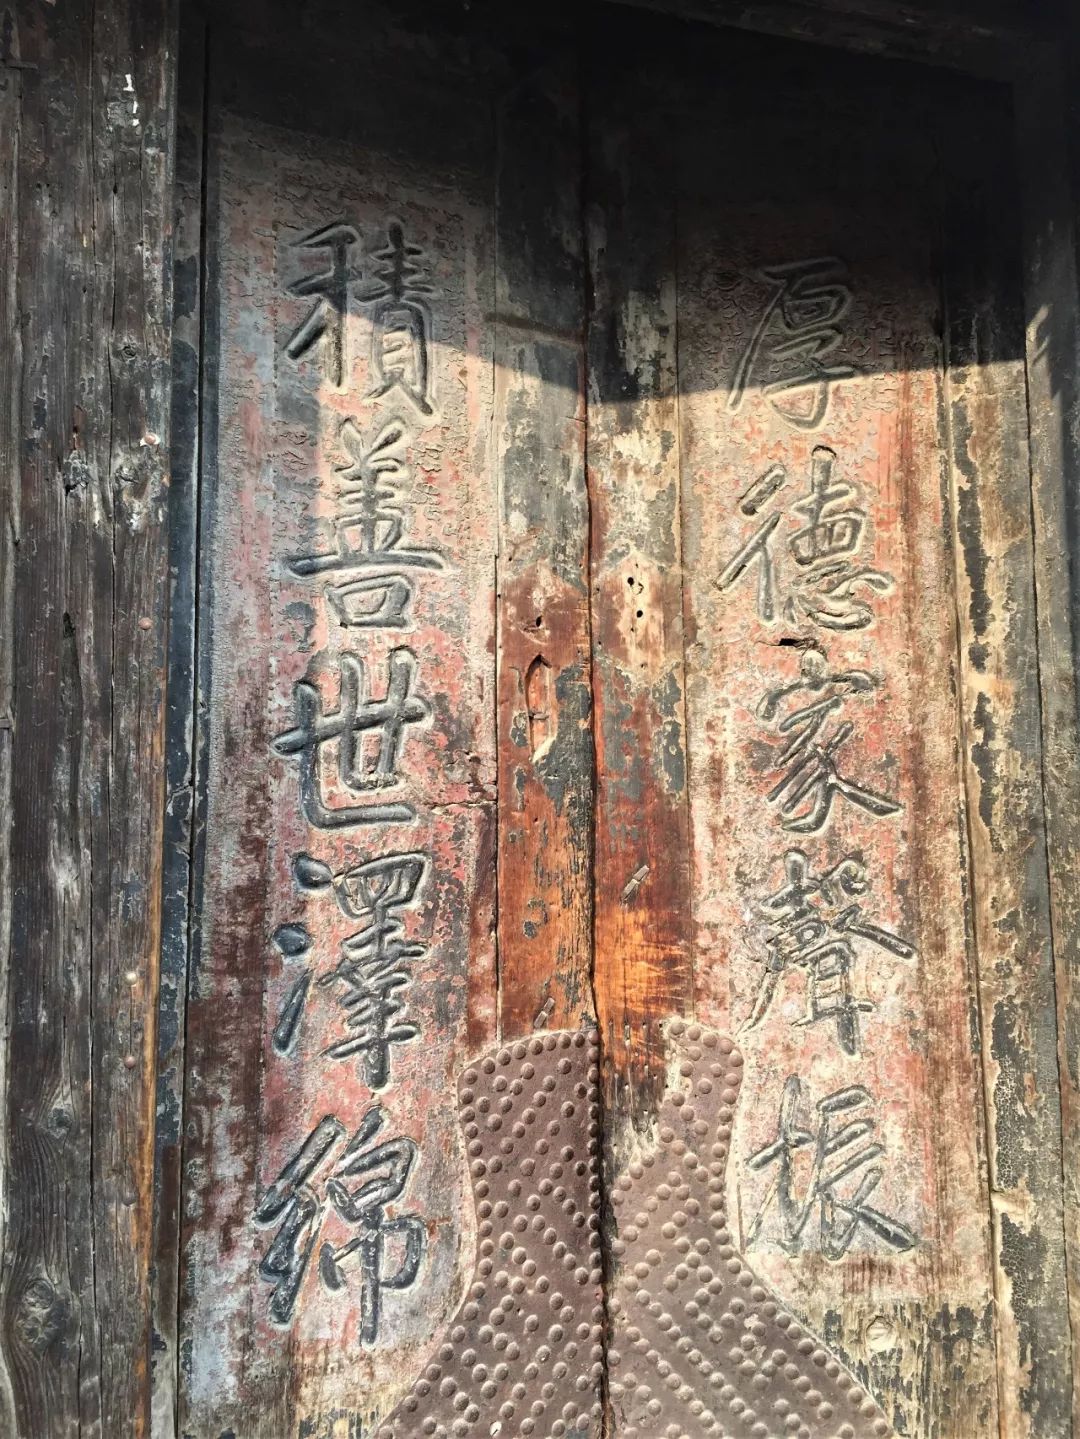 厚德家聲振
積善世澤綿